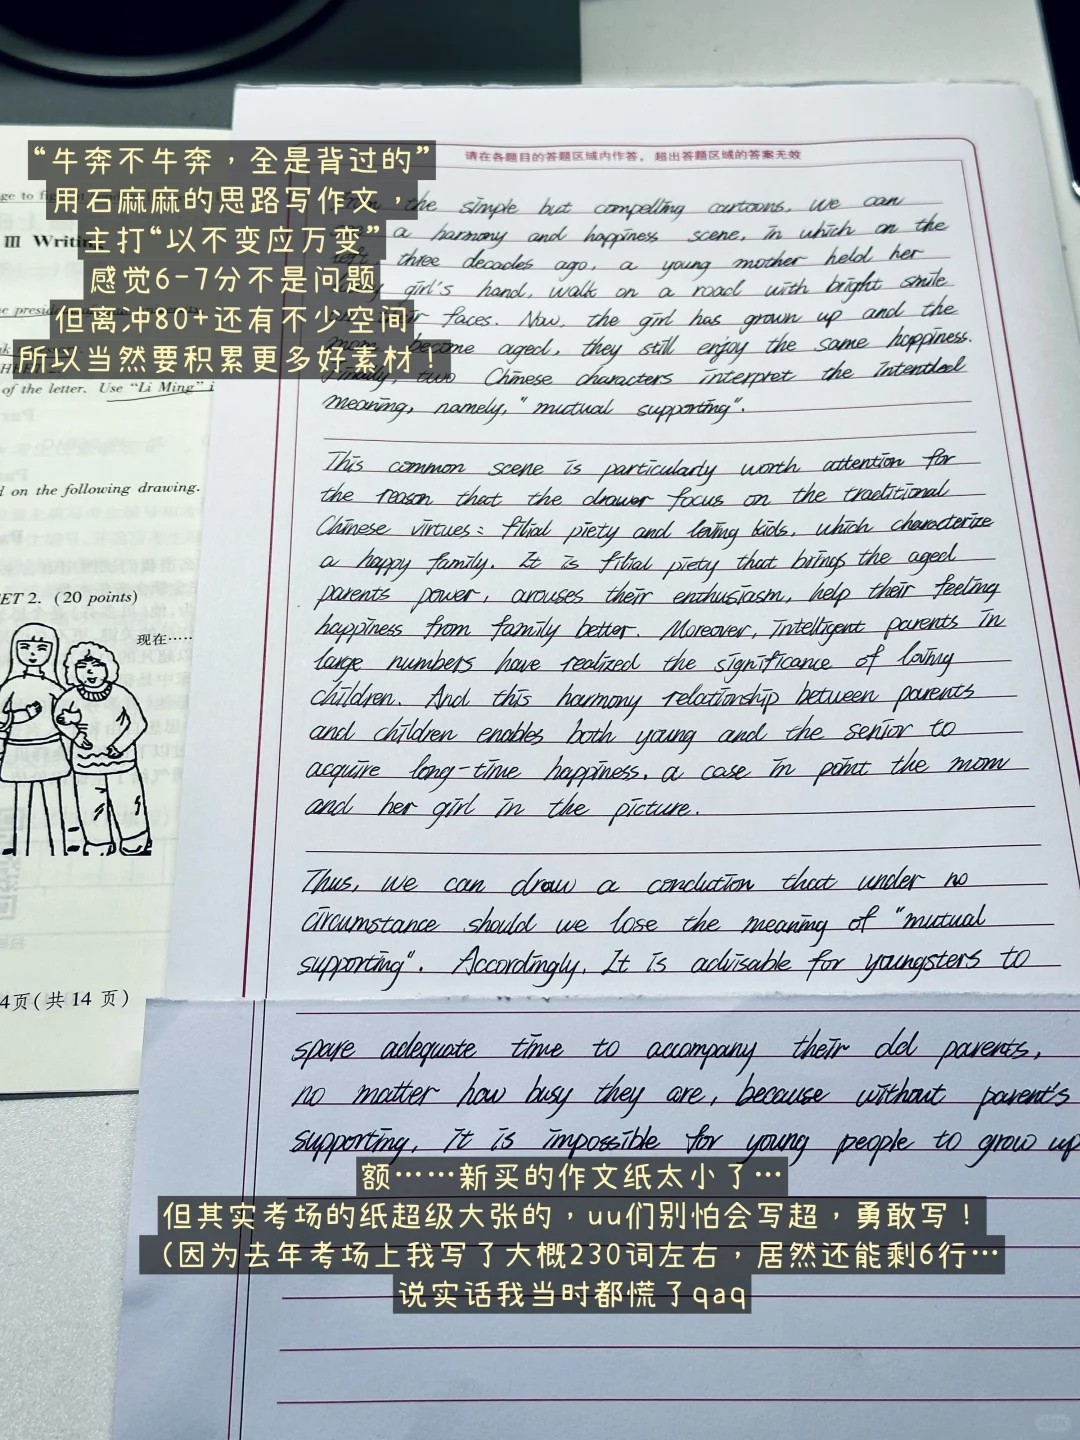 “牛奔不牛奔，全是背过的”
用石麻麻的思路写作文，
主打“以不变应万变”
感觉6-7分不是问题
但离冲80+还有不少空间
所以当然要积累更多好素材！
ge to fig
III Writing
he presid
of the letter. Use “Li Ming” i
d on the following drawing.
ET 2. (20 points)
现在……
4页(共 14 页)
请在各题目的答题区域内作答，超出答题区域的答案无效
the simple but compelling cartoons, we can
a harmony and happiness scene, in which on the
left, three decades ago, a young mother held her
girl's hand, walk on a road with bright smile
their faces. Now, the girl has grown up and the
become aged, they still enjoy the same happiness.
Finally, two Chinese characters interpret the intented
meaning, namely, "mutual supporting".
This common scene is particularly worth attention for
the reason that the drawer focus on the traditional
Chinese virtues: filial piety and loving kids, which characterize
a happy family. It is filial piety that brings the aged
parents power, arouses their enthusiasm, help their feeling
happiness from family better. Moreover, intelligent parents in
large numbers have realized the significance of loving
children. And this harmony relationship between parents
and children enables both young and the senior to
acquire long-time happiness. a case in point the mom
and her girl in the picture.
Thus, we can draw a conclution that under no
circumstance should we lose the meaning of "mutual
supporting". Accordingly, It is advisable for youngsters to
spare adequate time to accompany their old parents,
no matter how busy they are, because without parent's
supporting, it is impossible for young people to grow up
额……新买的作文纸太小了…
但其实考场的纸超级大张的，uu们别怕会写超，勇敢写！
（因为去年考场上我写了大概230词左右，居然还能剩6行…
说实话我当时都慌了qaq